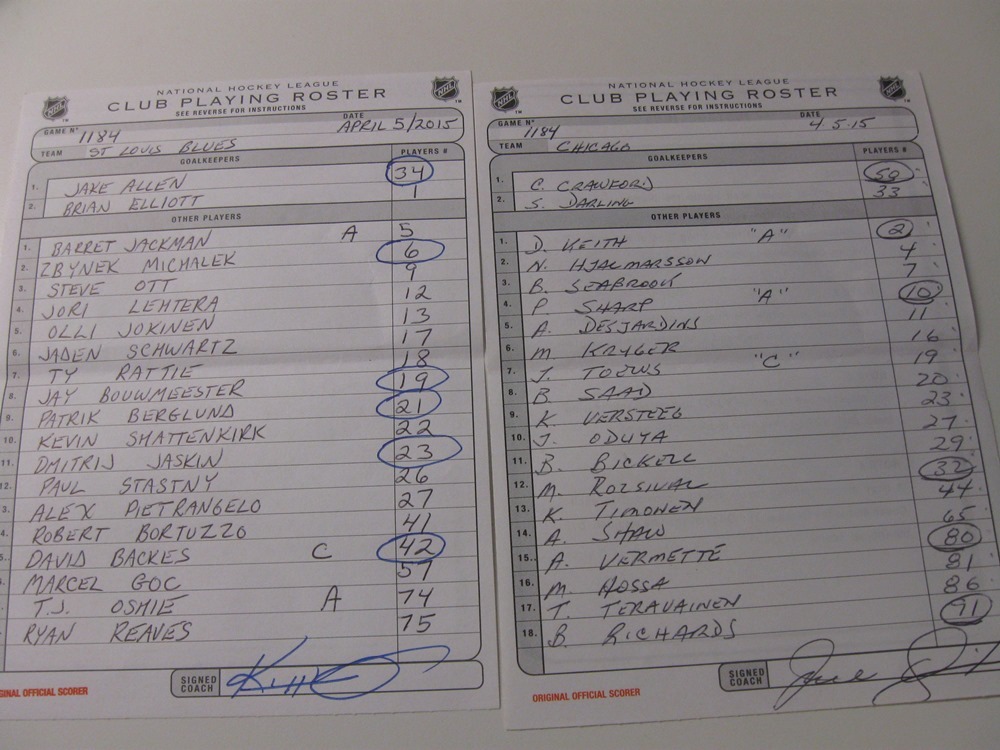 NATIONAL HOCKEY LEAGUE
CLUB PLAYING ROSTER
SEE REVERSE FOR INSTRUCTIONS
GAME N° 1184 DATE APRIL 5/2015
TEAM ST LOUIS BLUES
GOALKEEPERS PLAYERS #
1. JAKE ALLEN 34
2. BRIAN ELLIOTT 1
OTHER PLAYERS
1. BARRET JACKMAN A 5
2. ZBYNEK MICHALEK 6
3. STEVE OTT 9
4. JORI LEHTERA 12
5. OLLI JOKINEN 13
6. JADEN SCHWARTZ 17
7. TY RATTIE 18
8. JAY BOUWMEESTER 19
9. PATRIK BERGLUND 21
10. KEVIN SHATTENKIRK 22
11. DMITRIJ JASKIN 23
12. PAUL STASTNY 26
3. ALEX PIETRANGELO 27
4. ROBERT BORTUZZO 41
5. DAVID BACKES C 42
MARCEL GOC 57
T.J. OSHIE A 74
RYAN REAVES 75
SIGNED COACH
GINAL OFFICIAL SCORER
NATIONAL HOCKEY LEAGUE
CLUB PLAYING ROSTER
SEE REVERSE FOR INSTRUCTIONS
GAME N° 1184 DATE 4.5.15
TEAM CHICAGO
GOALKEEPERS PLAYERS #
1. C. CRAWFORD 50
2. S. DARLING 33
OTHER PLAYERS
1. D. KEITH "A" 2
2. N. HJALMARSSON 4
3. B. SEABROOK 7
4. P SHARP "A" 10
5. A. DESJARDINS 11
6. M KRUGER 16
7. J. TOEWS "C" 19
8. B SAAD 20
9. K VERSTEEG 23
10. J. ODUYA 27
11. B. BICKELL 29
12. M. ROZSIVAL 32
13. K. TIMONEN 44
14. A. SHAW 65
15. A. VERMETTE 80
16. M. HOSSA 81
17. T. TERAVAINEN 86
18. B. RICHARDS 91
SIGNED COACH
ORIGINAL OFFICIAL SCORER